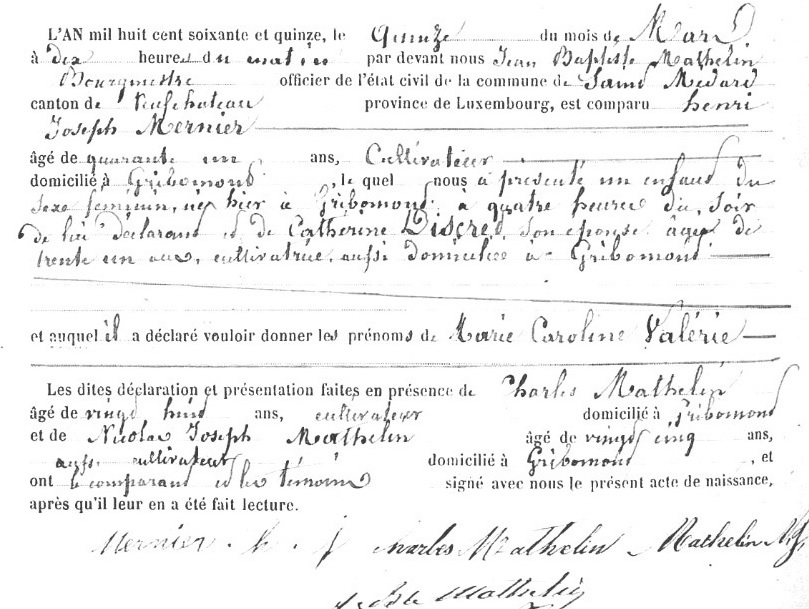 L'AN mil huit cent soixante et quinze, le Quinze du mois de Mars
à dix heures du matin par devant nous Jean Baptiste Mathelin
Bourgmestre officier de l'état civil de la commune de Saint Médard
canton de Neufchateau province de Luxembourg, est comparu henri
Joseph Mernier
âgé de quarante un ans, Cultivateur
domicilié à Gribomont, le quel nous a présenté un enfant du
sexe feminin, né hier à Gribomont à quatre heures du soir
de lui déclarant et de Cathérine Discret, son épouse agée de
trente un ans, cultivatrice, aussi domiciliée à Gribomont
et auquel il a déclaré vouloir donner les prénoms de Marie Caroline Valérie
Les dites déclaration et présentation faites en présence de Charles Mathelin
âgé de vingt huit ans, cultivateur domicilié à Gribomont
et de Nicolas Joseph Mathelin âgé de vingt cinq ans,
aussi cultivateur domicilié à Gribomont, et
ont le comparant et les témoins signé avec nous le présent acte de naissance,
après qu'il leur en a été fait lecture.
Mernier . h . j Charles Mathelin Mathelin N.J.
Mathelin